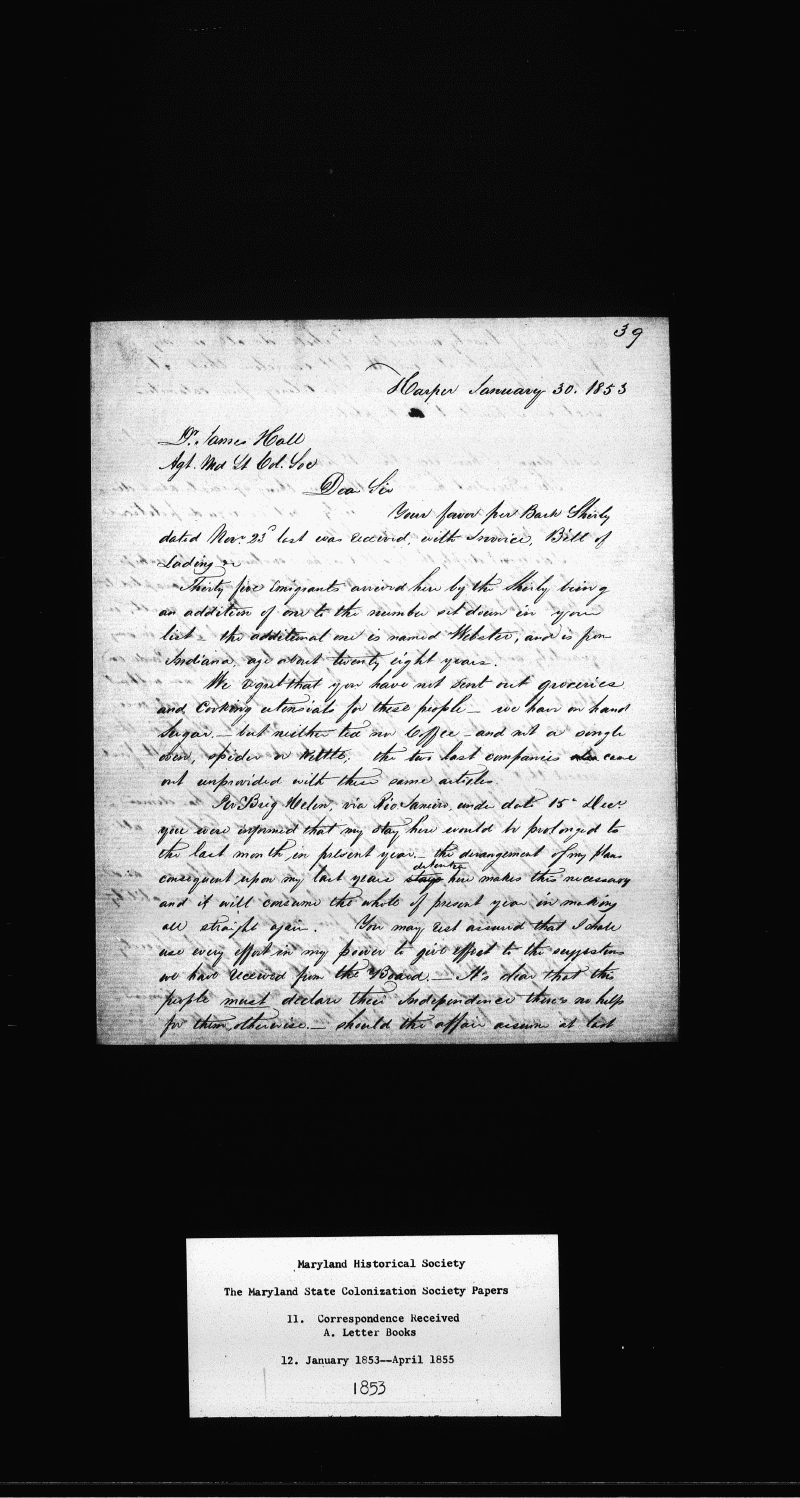 39
Harper January 30. 1853
Dr. James Hall
Agt. Md St Col. Soc
Dear Sir
Your favor per Bark Shirly
dated Novr. 23d last was received, with Invoice, Bill of
Lading &c
Thirty five Emigrants arrived here by the Shirly being
an addition of one to the number set down in your
list the additional one is named Webster, and is from
Indiana, age about twenty eight years.
We regret that you have not sent out groceries
and Cooking utensials for these people — we have on hand
Sugar — but neither tea nor Coffee — and not a single
oven, spider or Kettle; the two last companies also came
out unprovided with these same articles.
Per Brig Helen, via Rio Janeiro, under date 15th Decr.
you were informed that my stay here would be prolonged to
the last month in present year — the derangement of my plans
consequent upon my last years stay detention here makes this necessary
and it will consume the whole of present year in making
all straight again. You may rest assured that I shall
use every effort in my power to give effect to the suggestions
we have received from the Board. — It's clear that this
people must declare their Independence there's no help
for them otherwise. — should the affair assume at last
Maryland Historical Society
The Maryland State Colonization Society Papers
11. Correspondence Received
A. Letter Books
12. January 1853--April 1855
1853